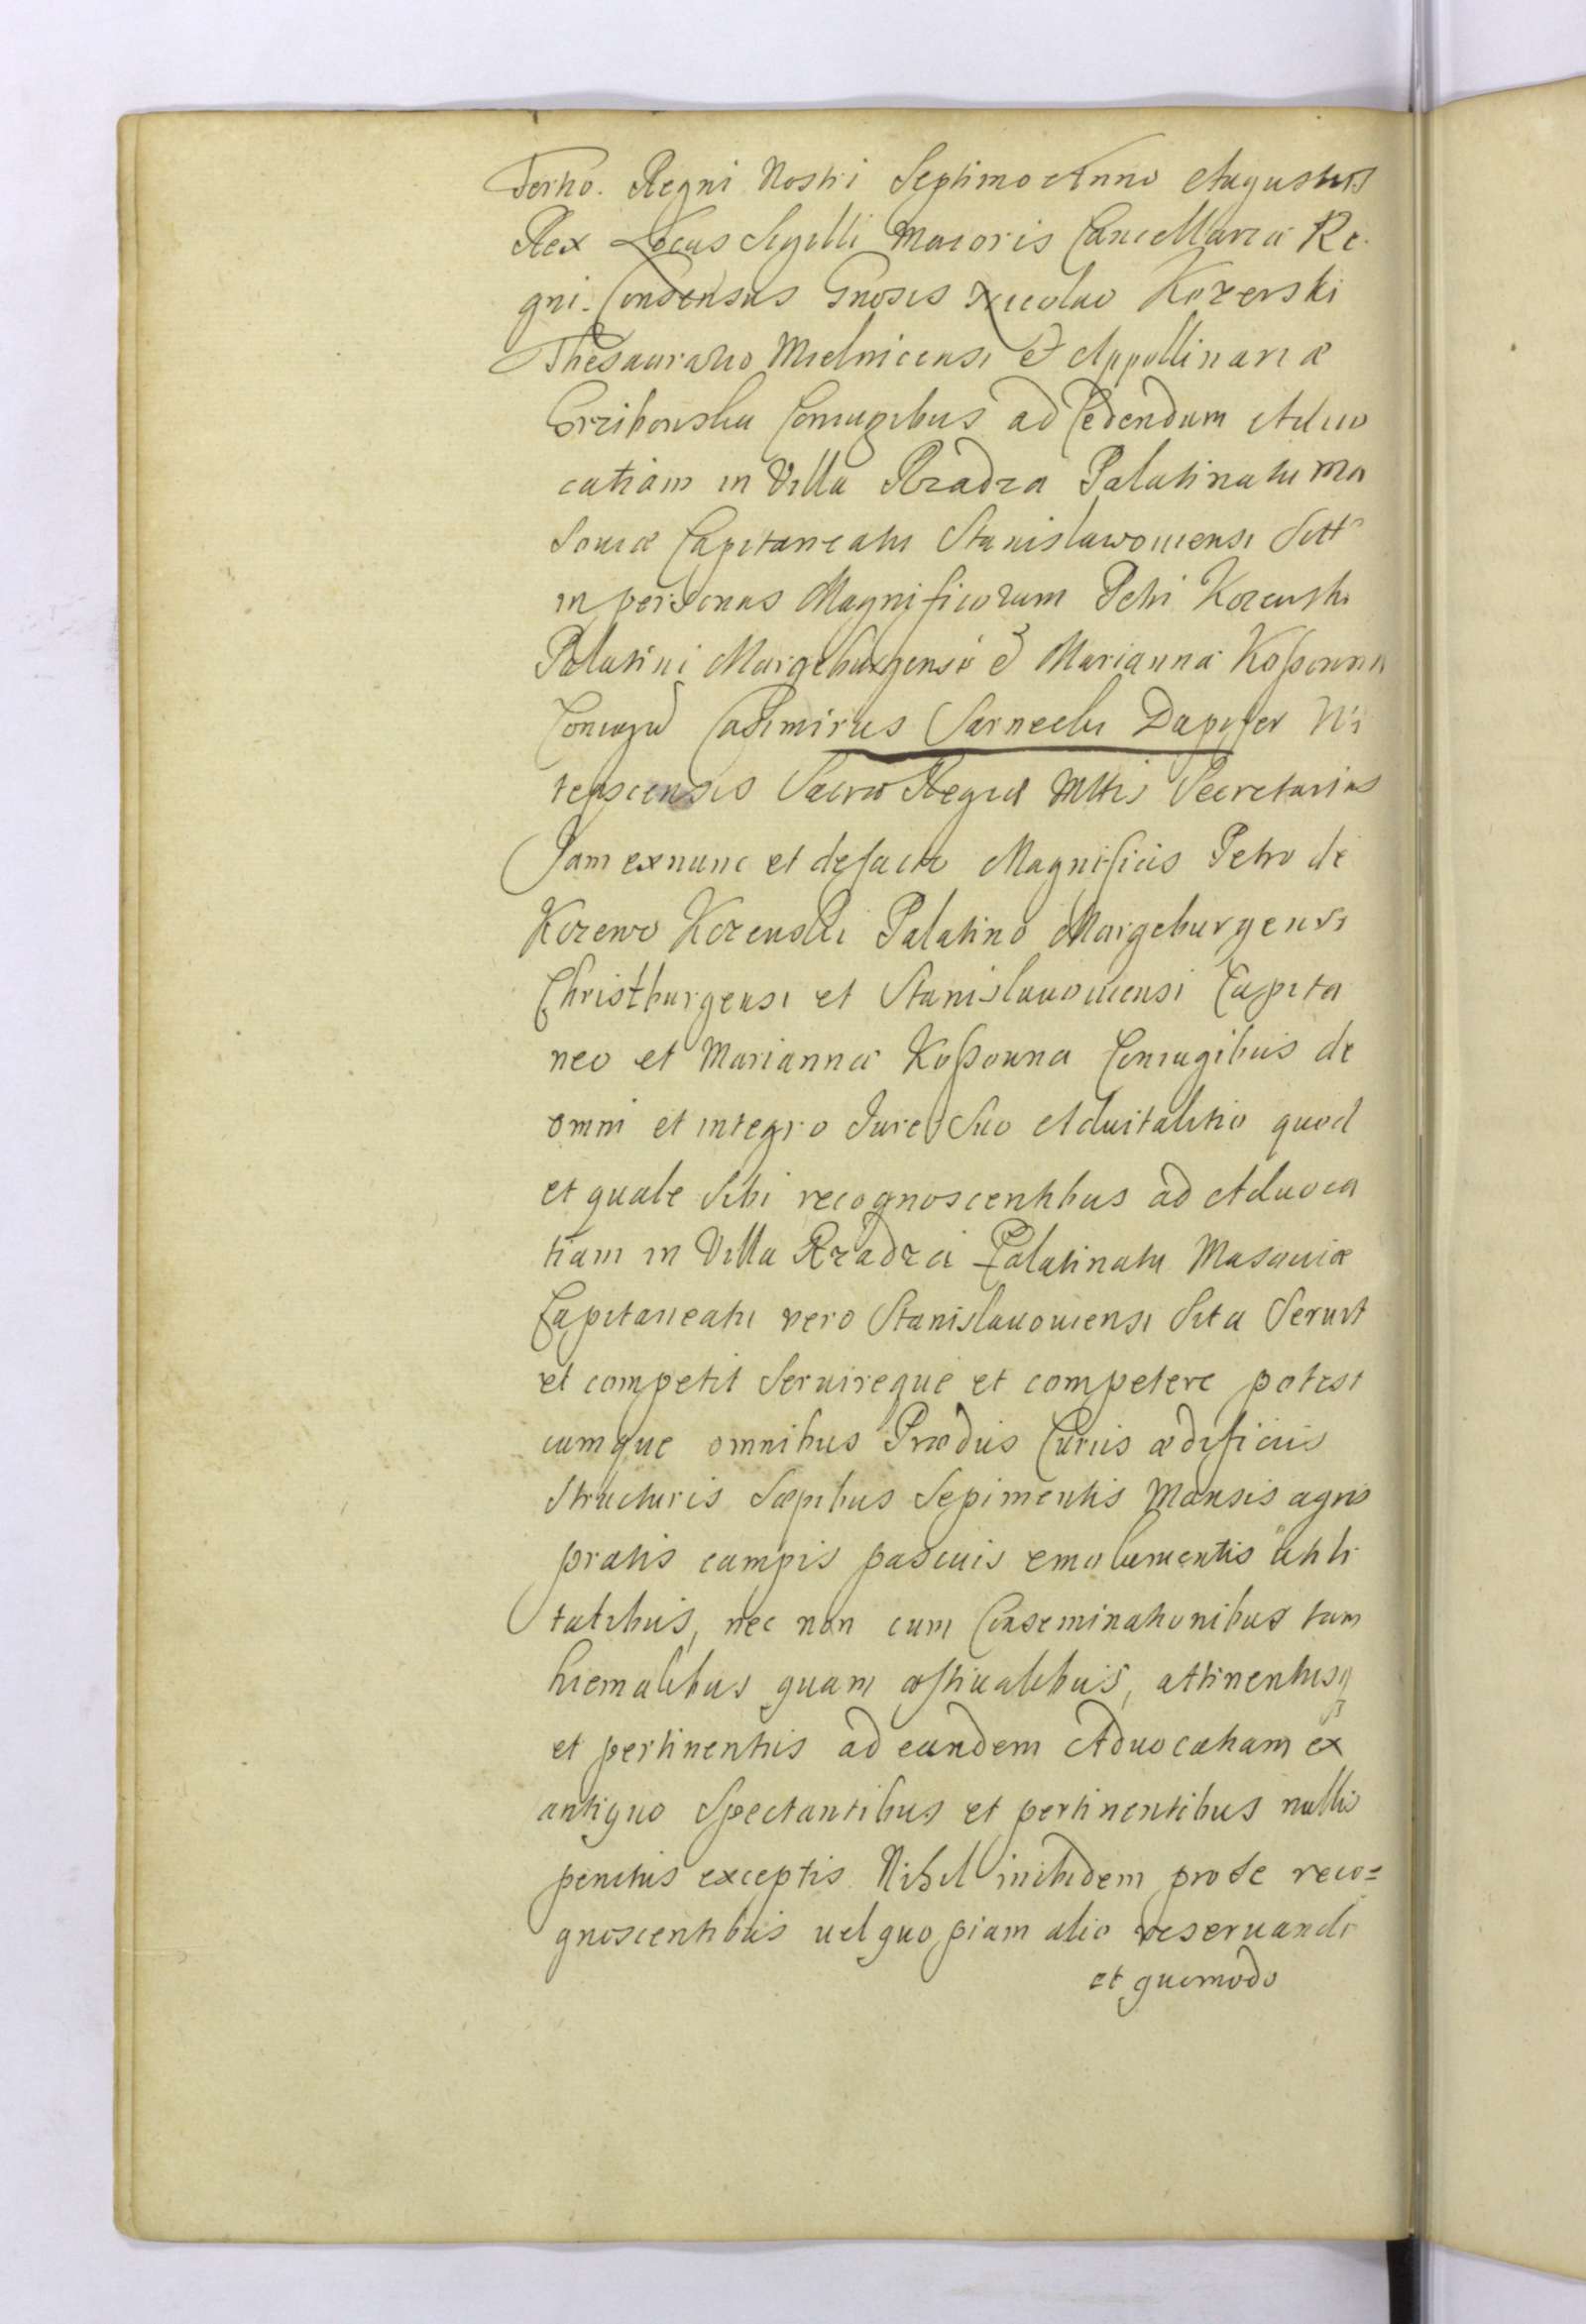 Tertio. Regni Nostri Septimo Anno Augustus
Rex Locus Sigilli Maioris Cancellariæ Re-
gni. Consensus Gnosis Nicolao Kozerski
Thesaurario Mielnicensi et Appollinariæ
Grzibowska Coniugibus ad Cedendum Aduo
catiam in Villa Rzadza Palatinatu Ma
souiæ Capitaneatu Stanislawowiensi Sitt
in personas Magnificorum Petri Kozewski
Palatini Margeburgensis et Marianna Kossowna
Coniugu Casimirus Sarnecki Dapifer Wi
tepscensis Sacræ Regiæ Mttis Secretarius
Jam exnunc et defacto Magnificis Petro de
Kozewo Kozewski Palatino Margeburgensi
Christburgensi et Stanislauowiensi Capita
neo et Mariannæ Kossowna Coniugibus de
omni et integro Jure Suo Aduitalitio quod
et quale Sibi recognoscentibus ad Aduoca
tiam in Villa Rzadza Palatinatu Masouiæ
Capitaneatu vero Stanislauowiensi Sita Seruit
et competit Seruireque et competere potest
cumque omnibus Prædiis Curiis ædificiis
Structuris Sæpibus Sepimentis Mansis agris
pratis campis pascuis emolumentis utili
tatibus, nec non cum Conseminationibus tam
hiemalibus quam æstiualibus, attinentiisq
et pertinentiis ad eandem Aduocatiam ex
antiquo Spectantibus et pertinentibus nullis
penitus exceptis Nihil inibidem pro se reco=
gnoscentibus uel quo piam alio reseruando
et quomodo